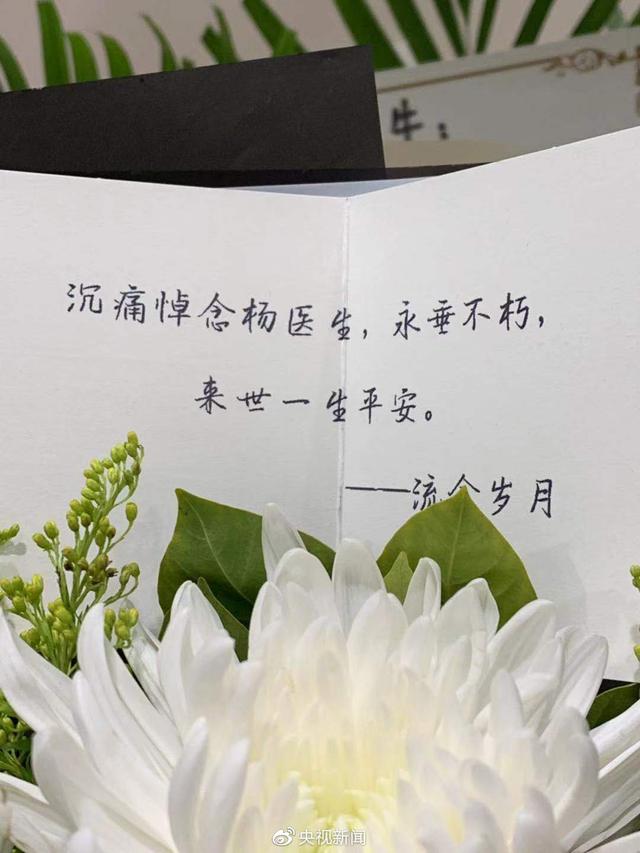 沉痛悼念杨医生，永垂不朽，
来世一生平安。
——流金岁月
央视新闻